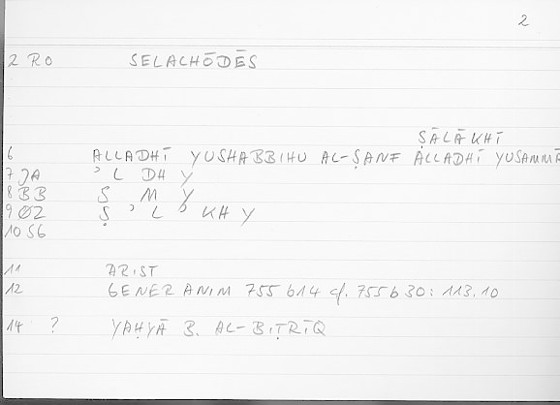 2
2 RO SELACHŌDĒS
ṢĀLĀKHĪ
6 ALLADHĪ YUSHABBIHU AL-ṢANF ALLADHĪ YUSAMMĀ
7 JA ʾ L DH Y
8 BB S M Y
9 OZ Ṣ ʾ L ʾ KH Y
10 SG
11 ARIST
12 GENER ANIM 755 b14 cf. 755 b 30: 113.10
14 ? YAḤYĀ B. AL-BIṬRĪQ